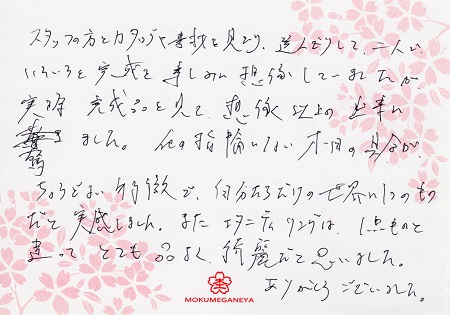 スタッフの方とカタログや素材を見たり、選んだりして、二人で、
いろいろと完成を楽しみに想像していましたが、
実際 完成品を見て、想像以上の出来に
驚きました。他の指輪にない木目の具合が、
ちょうどよい特徴で、自分たちだけの世界に1つのもの
だと実感しました。また エタニティリングは、1点ものと
違って とても 品よく、綺麗だと思いました。
ありがとうございました。
MOKUMEGANEYA